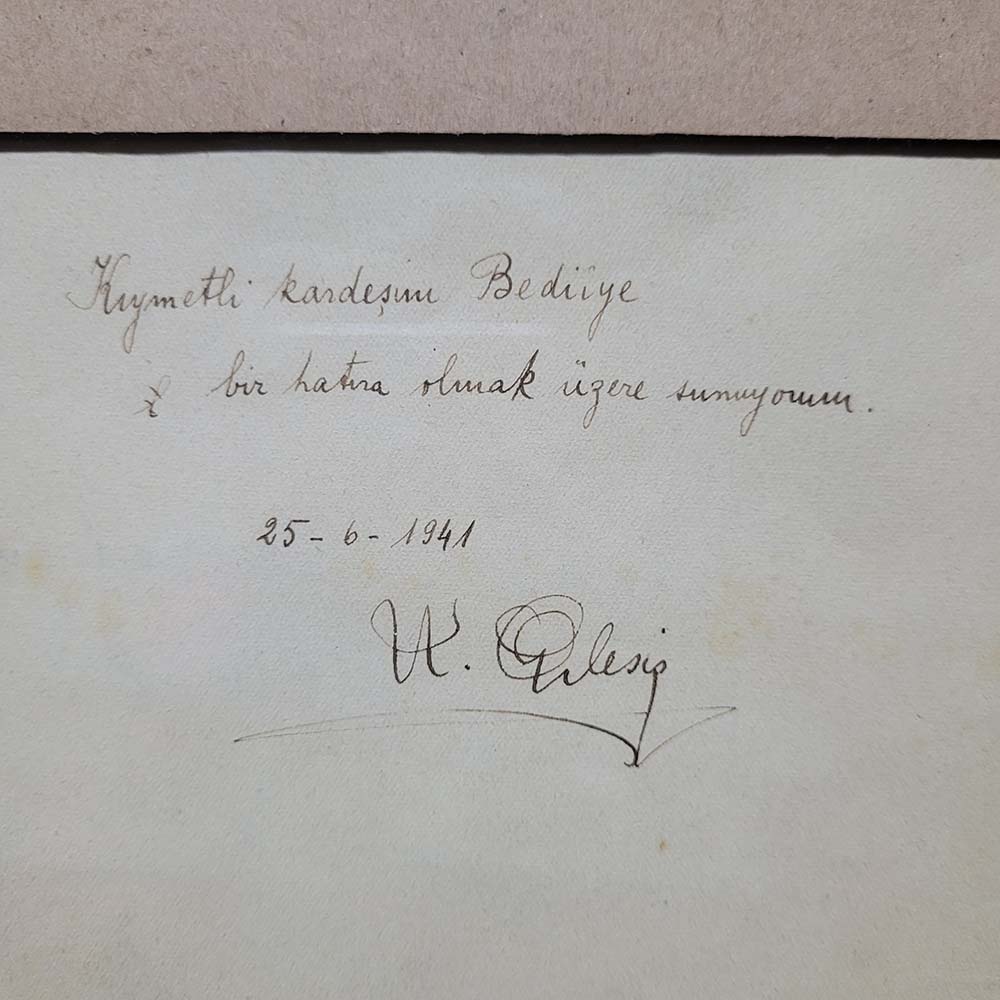 Kıymetli kardeşim Bediîye
bir hatıra olmak üzere sunuyorum.
25-6-1941